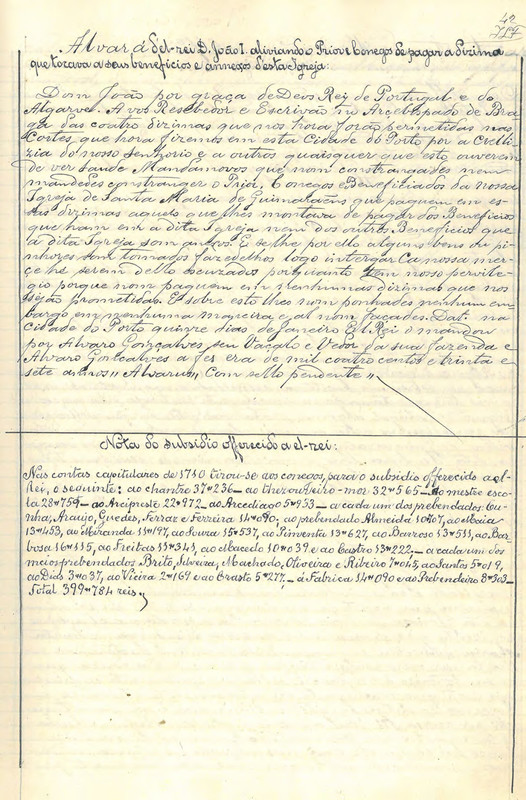 42
Alvará d'el-rei D. João I. aliviando o Prior e Conegos de pagar a Dizima
que tocava a seus beneficios e annexos d'esta Igreja:
Dom João por graça de Deos Rei de Portugal e do
Algarve. A vos Resebedor e Escrivão no Arcebispado de Bra
ga das coatro dizimas que nos hora forão permetidas nas
Cortes, que hora fizemos em esta Cidade do Porto por a Creli
zia do nosso senhorio e a outros quaisquer que esto ouverem
de ver saude Mandamovos que nom constrangades nem
mandedes constranger o Priol e Conegos e Beneficiados da nossa
Igreja de Santa Maria de Guimaraens que paguem em es
tas dizimas aquelo que lhes montava de pagar dos Beneficios
que ham em a dita Igreja nem dos outros Beneficios que
á dita Igreja som anexos. E se lhe por ello alguns bens ou pi
nhores som tomados fazedelhos logo intergar Ca nossa mer
çe hé serem dello escuzados porquanto tem nosso previle
gio porque nom paguem em nenhumas dizimas que nos
sejão prometidas. E sobre esto lhes nom ponhades nenhum em
bargo em nenhuma maneira e al nom façades. Dat. na
Cidade do Porto quinze dias de Janeiro El Rei o mandou
por Alvaro Gonçalves seu Vaçalo e Vedor da sua fazenda e
Alvaro Goncalves a fes era de mil coatro centos e trinta e
sete annos,, Alvarus,, Com sello pendente,,
Nota do subsidio offerecido a el-rei:
Nas contas capitulares de 1710 tirou-se aos conegos, para o subsidio offerecido a el-
rei, o seguinte: ao chantre 37"236 — ao thezoureiro-mor 32"565 — Ao mestre esco-
la 28"759 — ao Arcipreste 22"972 — ao Arcediago 5"933 — a cada um dos prebendados: Cu-
nha, Araujo, Guedes, Ferraz e Ferreira 14"090, ao prebendado Almeida 10"707, ao Maia
13"453, ao Miranda 11"197, ao Sousa 15"537, ao Pimenta 13"627, ao Barrozo 13"511, ao Bar
bosa 16"115, ao Freitas 11"341, ao Macedo 10"039 e ao Castro 13"222. — a cada um dos
meios prebendados Brito, Silveira, Machado, Oliveira e Ribeiro 7"045, ao Santos 5"019,
ao Dias 3"037, ao Vieira 2"169 e ao Crasto 5"277. — á Fabrica 14"090 e ao Prebendeiro 8"303 —
Total 399"784 reis,,